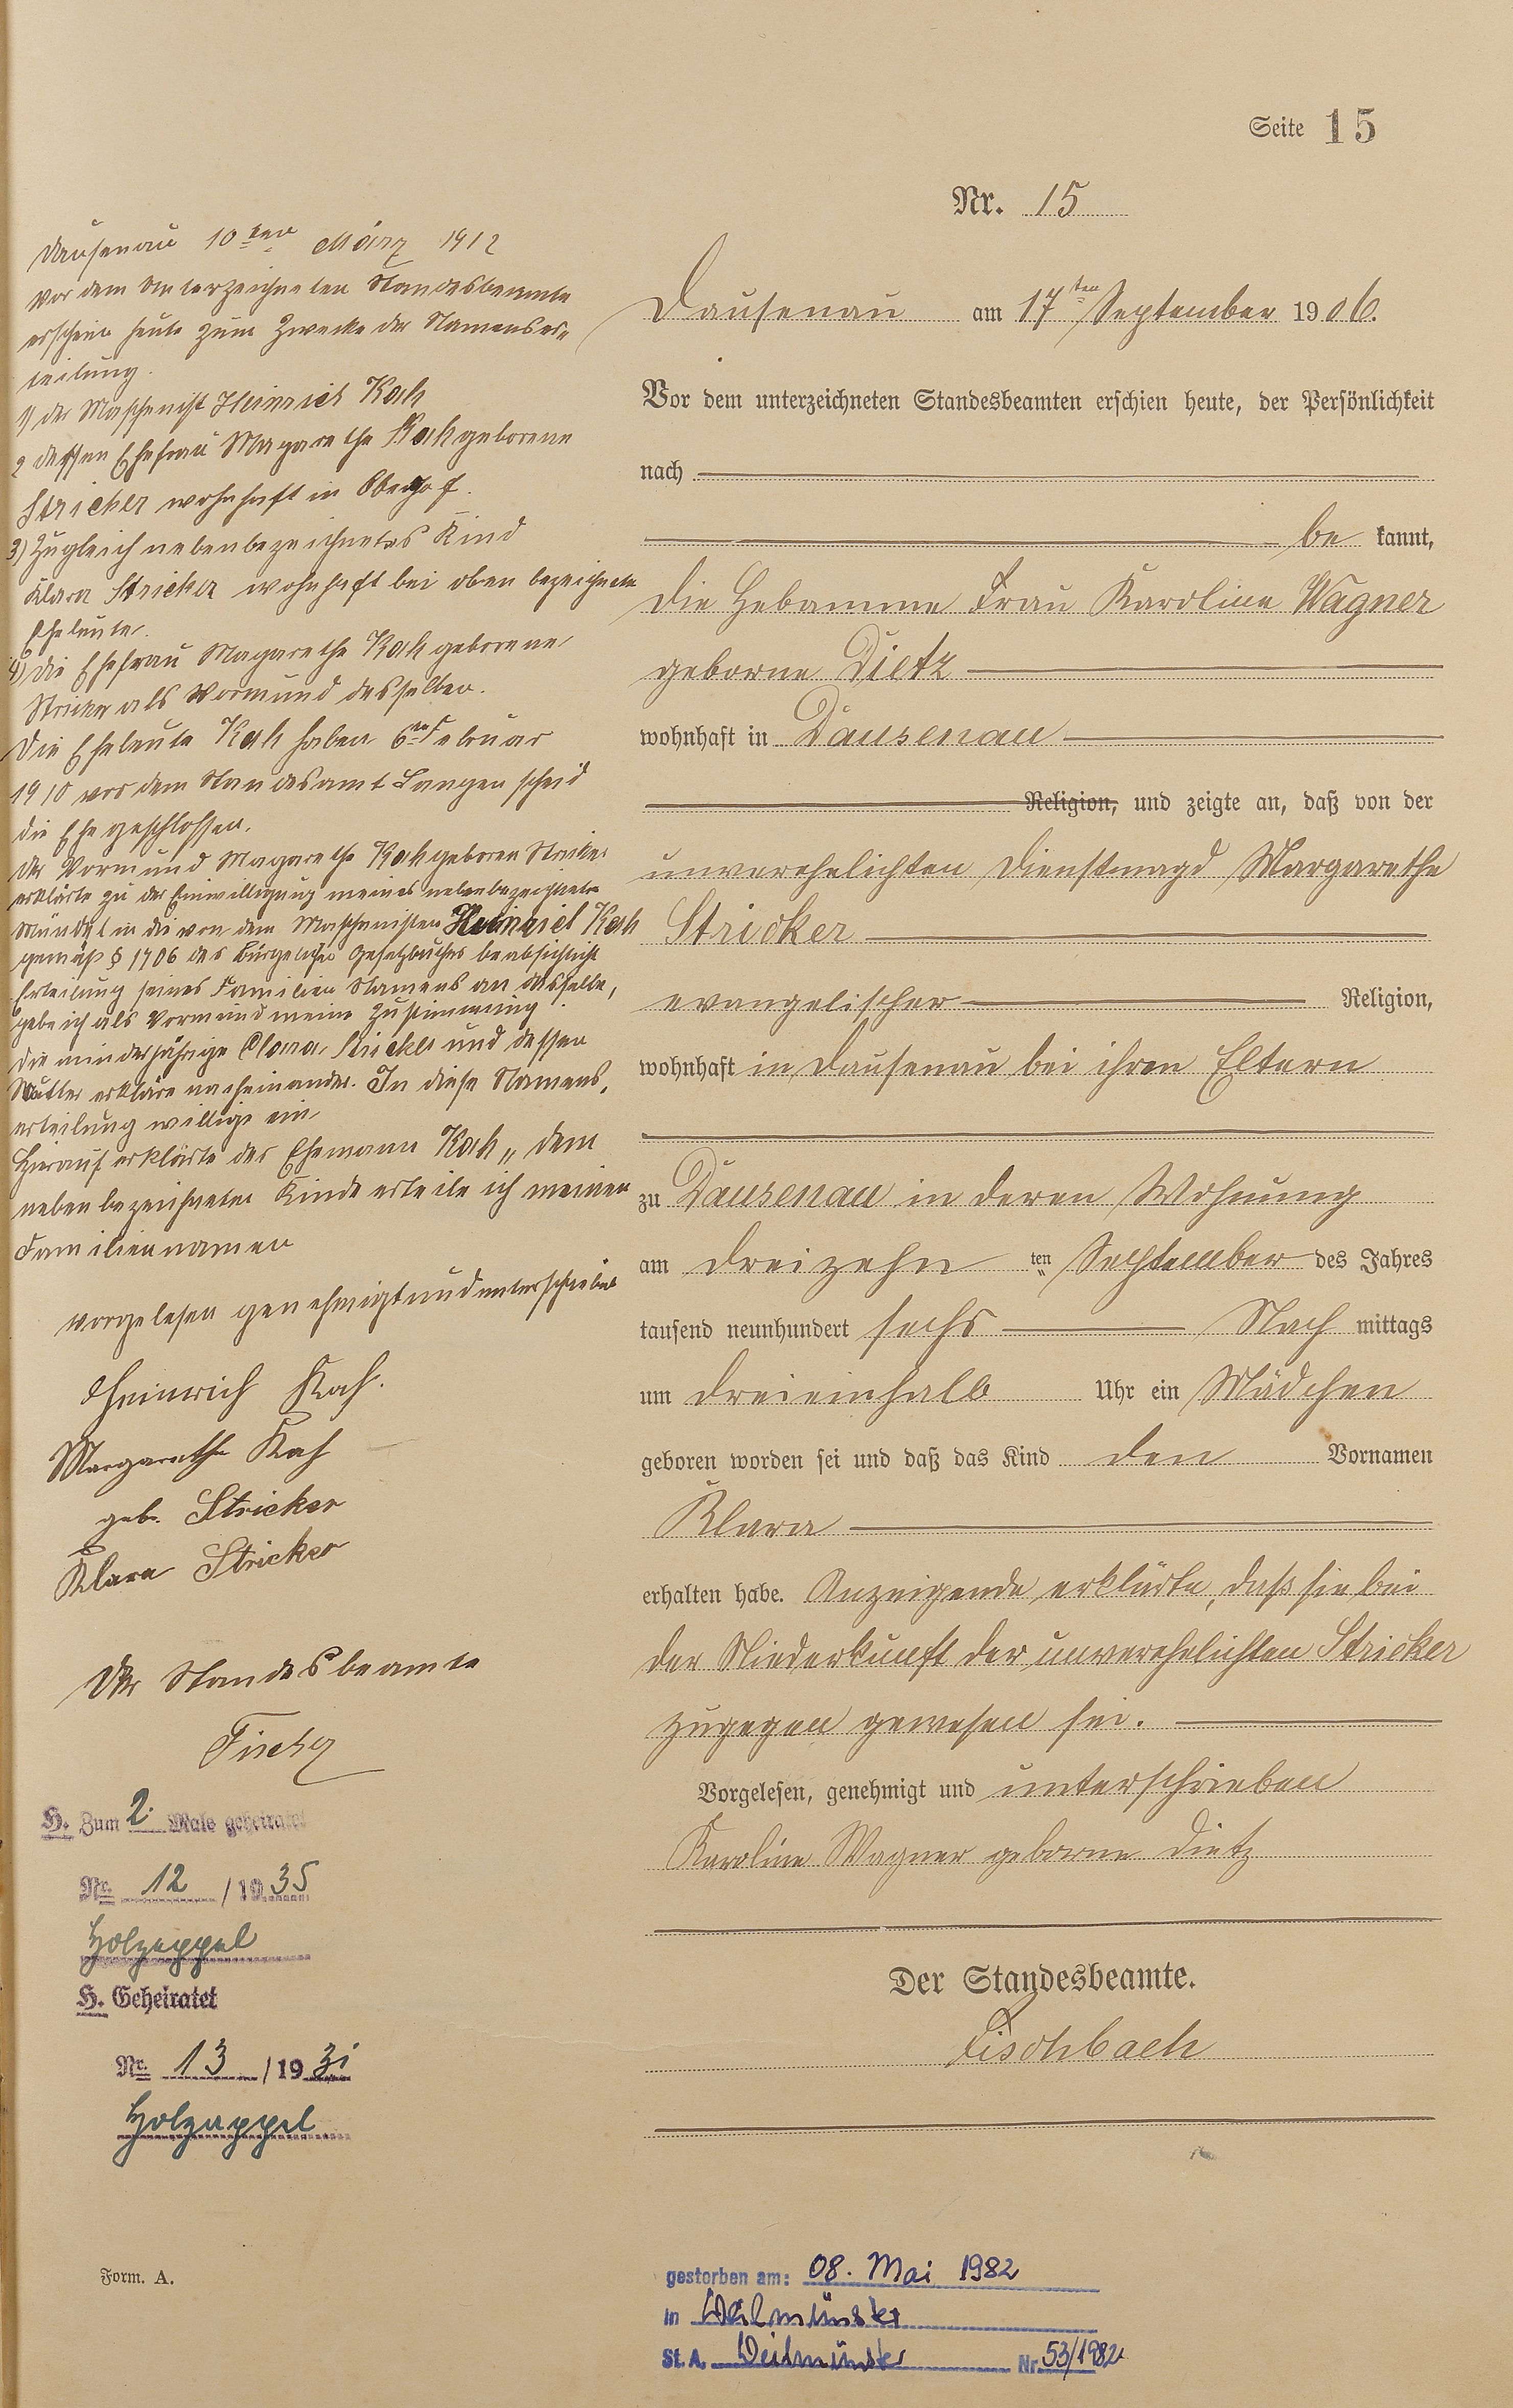 Seite 15
Nr. 15
Dausenau 10ten März 1912
Vor dem Unterzeichneten Standesbeamte
erschien heute zum Zwecke der Namenser=
teilung.
1) der Maschenist Heinrich Kah
2 dessen Ehefrau Magarethe Kah geborene
Stricker wohnhaft in Oberhof.
3) Zugleich nebenbezeichnetes Kind
Klara Stricker wohnhaft bei oben bezeichnete
Eheleute.
4) die Ehefrau Magarethe Kah geborene
Stricker als Vormund desselben.
Die Eheleute Kah haben 6ten Februar
1910 vor dem Standesamt Langenscheid
die Ehe geschlossen.
Der Vormund Magarethe Kah geboren Stricker
erklärte zu der Einwilligung meines nebenbezeichneten
Mündel in die von dem Maschenisten Heinrich Kah
gemäß § 1706 des Bürgelichen Gesetzbuches beabsichticht
Erteilung seines Familien Namens an dasselbe,
gebe ich als Vormund meine Zustimmung
die minderjährige Clara Stricker und dessen
Mutter erkläre nacheinander. In diese Namens,
erteilung willige ein
Hierauf erklärte der Ehemann Kah „ dem
nebenbezeichneten Kinde erteile ich meinen
Familiennamen
vorgelesen genehmigt und unterschrieben
Heinrich Kah.
Margarethe Kah
geb. Stricker
Klara Stricker
Der Standesbeamte
Fischer
H. Zum 2. Male geheiratet
Nr. 12 / 1935
Holzappel
H. Geheiratet
Nr. 13 / 1931
Holzappel
Form. A.
Dausenau am 17ten September 1906.
Vor dem unterzeichneten Standesbeamten erschien heute, der Persönlichkeit
nach
be kannt,
die Hebamme Frau Karoline Wagner
geborne Dietz
wohnhaft in Dausenau
Religion, und zeigte an, daß von der
unverehelichten Dienstmagd Margarethe
Stricker
evangelischer Religion,
wohnhaft in Dausenau bei ihren Eltern
zu Dausenau in deren Wohnung
am dreizehn ten September des Jahres
tausend neunhundert sechs Nach mittags
um dreieinhalb Uhr ein Mädchen
geboren worden sei und daß das Kind den Vornamen
Klara
erhalten habe. Anzeigende erklärte, daß sie bei
der Niederkunft der unverehelichten Stricker
zugegen gewesen sei.
Vorgelesen, genehmigt und unterschrieben
Karoline Wagner geborne Dietz
Der Standesbeamte.
Fischbach
gestorben am: 08. Mai 1982
in Weilmünster
St. A. Weilmünster Nr. 53/1982